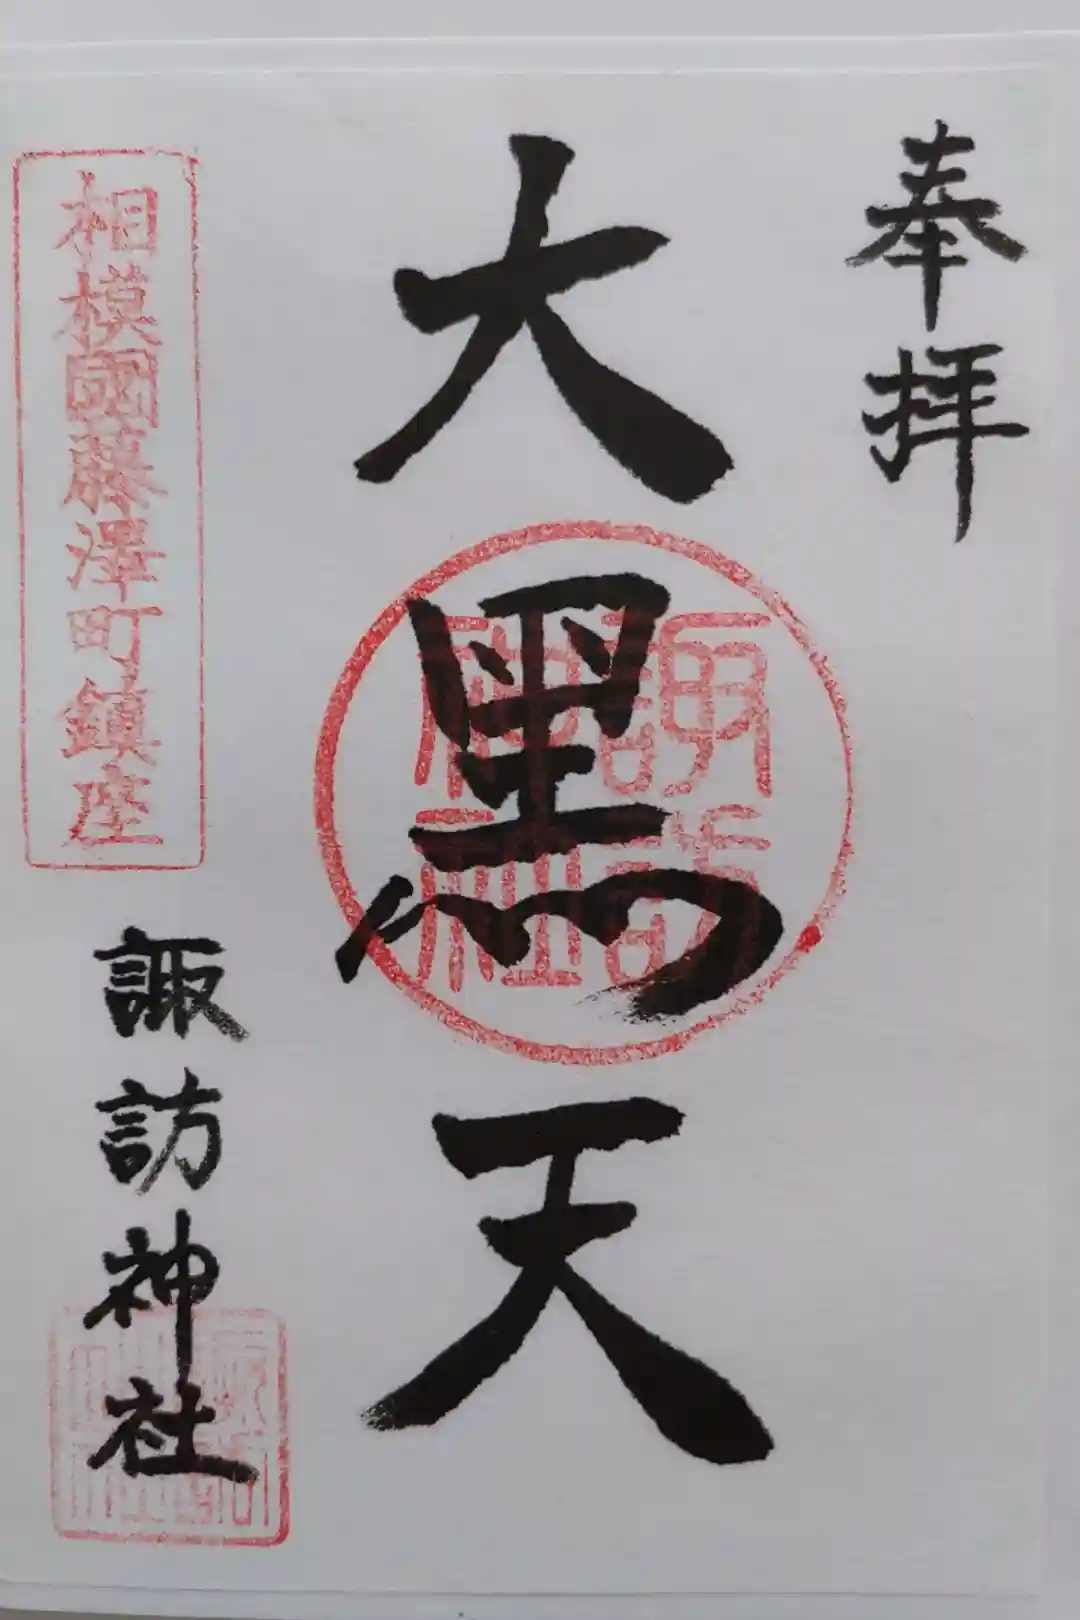 奉拝
大黒天
諏訪神社
相模國藤澤町鎮座
諏訪神社